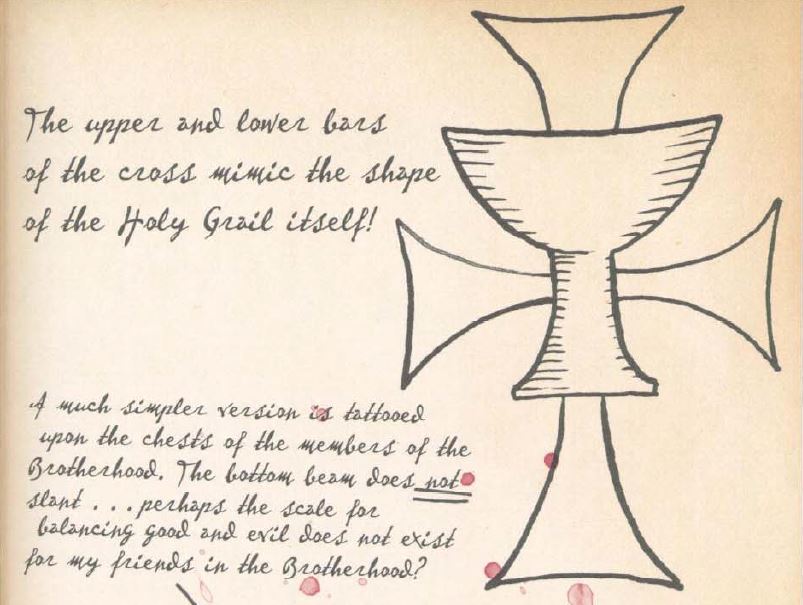 The upper and lower bars
of the cross mimic the shape
of the Holy Grail itself!
A much simpler version is tattooed
upon the chests of the members of the
Brotherhood. The bottom beam does not
slant . . . perhaps the scale for
balancing good and evil does not exist
for my friends in the Brotherhood?